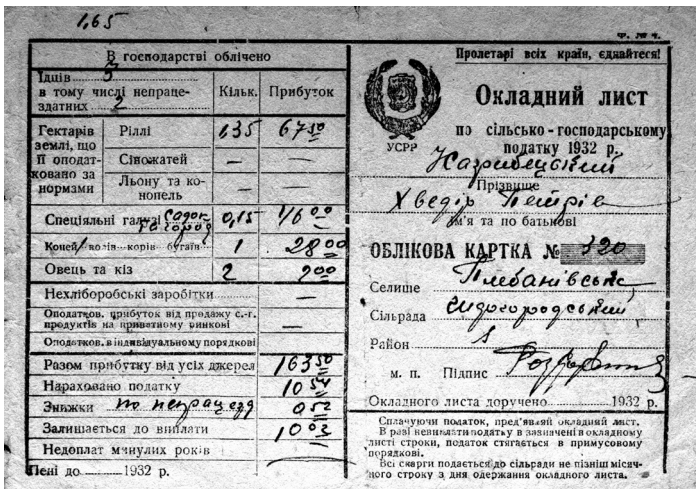 1,65
В господарстві облічено
Їдців 3
в тому числі непраце-
здатних 2
Кільк.
Прибуток
Гектарів
землі, що
її оподат-
ковано за
нормами
Ріллі 1,35 67 50
Сіножатей — —
Льону та ко-
нопель — —
Спеціяльні галузі Садок
город 0,15 16 00
Коней/волів корів бугаїв 1 28 00
Овець та кіз 2
Нехліборобські заробітки —
Оподатков. прибуток від продажу с.-г.
продуктів на приватному ринкові —
Оподатков. в індивідуальному порядкові
Разом прибутку від усіх джерел 163 50
Нараховано податку 10 54
Знижки по непрацезд 0 52
Залишається до виплати 10 02
Недоплат минулих років
Пені до 1932 р.
Пролетарі всіх країн, єднайтеся!
УСРР
Окладний лист
по сільсько-господарському
податку 1932 р.
Прізвище
Хведір Петрів
Ім'я та по батькові
ОБЛІКОВА КАРТКА № 320
Селище Плебанівськ
Сільрада
Район 1
м. п. Підпис
Окладного листа доручено 1932 р.
Сплачуючи податок, пред'являй окладний лист.
В разі невиплати податку в зазначені в окладному
листі строки, податок стягається в примусовому
порядкові.
Всі скарги подається до сільради не пізніш місяч-
ного строку з дня одержання окладного листа.